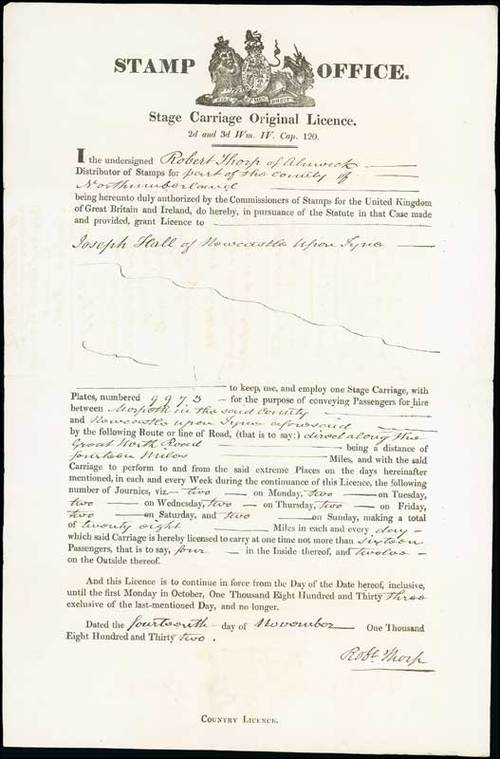 STAMP OFFICE.
Stage Carriage Original Licence.
2d and 3d Wm. IV. Cap. 120.
I the undersigned Robert Thorp of Alnwick
Distributor of Stamps for part of the County of
Northumberland
being hereunto duly authorized by the Commissioners of Stamps for the United Kingdom
of Great Britain and Ireland, do hereby, in pursuance of the Statute in that Case made
and provided, grant Licence to
Joseph Hall of Newcastle upon Tyne
to keep, use, and employ one Stage Carriage, with
Plates, numbered 9973 for the purpose of conveying Passengers for hire
between Morpeth in the said County
and Newcastle upon Tyne aforesaid
by the following Route or line of Road, (that is to say:) direct along the
Great North Road being a distance of
fourteen Miles Miles, and with the said
Carriage to perform to and from the said extreme Places on the days hereinafter
mentioned, in each and every Week during the continuance of this Licence, the following
number of Journies, viz. two on Monday, two on Tuesday,
two on Wednesday, two on Thursday, two on Friday,
two on Saturday, and two on Sunday, making a total
of twenty eight Miles in each and every day
which said Carriage is hereby licensed to carry at one time not more than sixteen
Passengers, that is to say, four in the Inside thereof, and twelve
on the Outside thereof.
And this Licence is to continue in force from the Day of the Date hereof, inclusive,
until the first Monday in October, One Thousand Eight Hundred and Thirty three
exclusive of the last-mentioned Day, and no longer.
Dated the fourteenth day of November One Thousand
Eight Hundred and Thirty two.
Robt. Thorp
COUNTRY LICENCE.